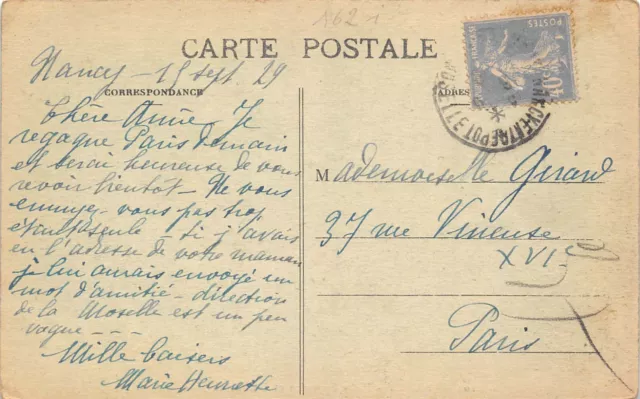 1621
CARTE POSTALE
Nancy - 15 sept. 29
CORRESPONDANCE
ADRES
POSTES
Chère Amie, Je
regagne Paris demain
et serai heureuse de vous
revoir bientôt - Ne vous
ennuyez-vous pas trop
étant seule - Si j'avais
eu l'adresse de votre maman
je lui aurais envoyé un
mot d'amitié - direction
de la Moselle est un peu
vague - - -
Mille baisers
Marie Henriette
Mademoiselle Girard
37 rue Vineuse
XVIe
Paris